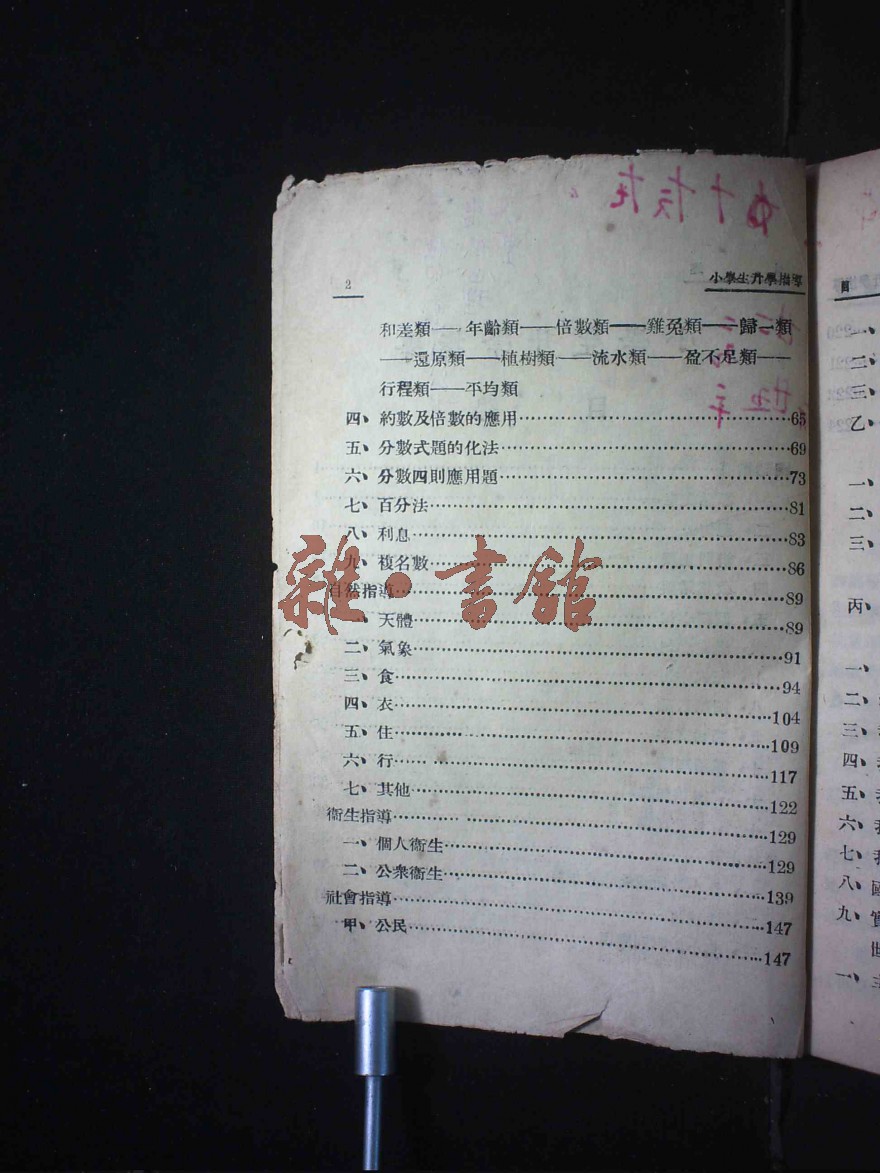 2
小學生升學指導
和差類——年齡類——倍數類——雞兔類——歸一類
——還原類——植樹類——流水類——盈不足類——
行程類——平均類
四、約數及倍數的應用………65
五、分數式題的化法………69
六、分數四則應用題………73
七、百分法………81
八、利息………83
九、複名數………86
自然指導………89
一、天體………89
二、氣象………91
三、食………94
四、衣………104
五、住………109
六、行………117
七、其他………122
衞生指導………129
一、個人衞生………129
二、公衆衞生………139
社會指導………147
甲、公民………147
雜·書館
目
一、
二、
三、
乙、
一、
二、
三、
丙、
一、
二、
三、
四、
五、
六、
七、
八、
九、
一、